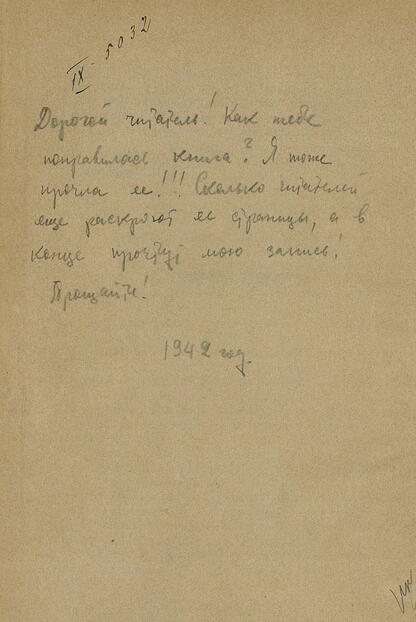 IX-5032
Дорогой читатель! Как тебе
понравилась книга? Я тоже
прочла ее!!! Сколько читателей
еще раскроют ее страницы, а в
конце прочтут мою запись!
Прощайте!
1942 год.